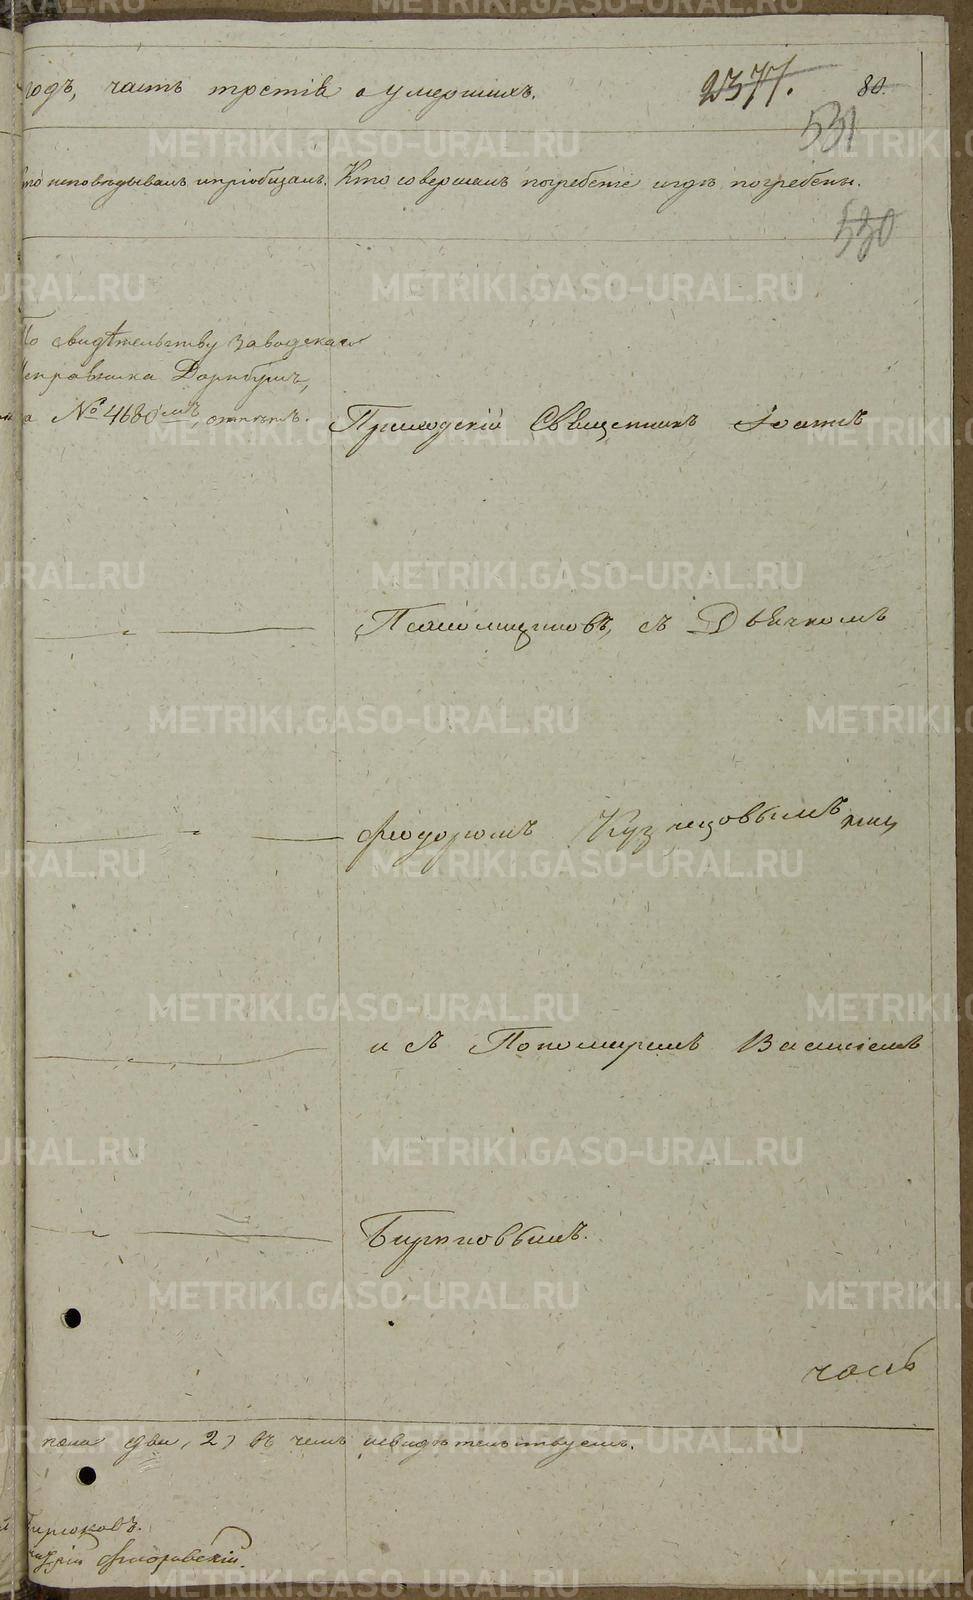 годъ, часть третія о умершихъ. 2377. 80.
531
исповѣдывалъ и пріобщалъ. Кто совершалъ погребеніе и гдѣ погребены.
530
По свидѣтельству заводскаго
исправника
№ 4680 отпѣтъ. Приходскій Священникъ Іоаннъ
съ Дьячкомъ
Феодоромъ Кузнецовымъ
и съ Пономаремъ Василіемъ
Бирюковымъ.
часъ
пола два, 2) въ чемъ и свидѣтельствуемъ.
Бирюковъ.
METRIKI.GASO-URAL.RU